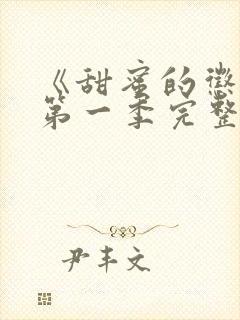 《甜蜜的徵
第一季完整
尹丰文